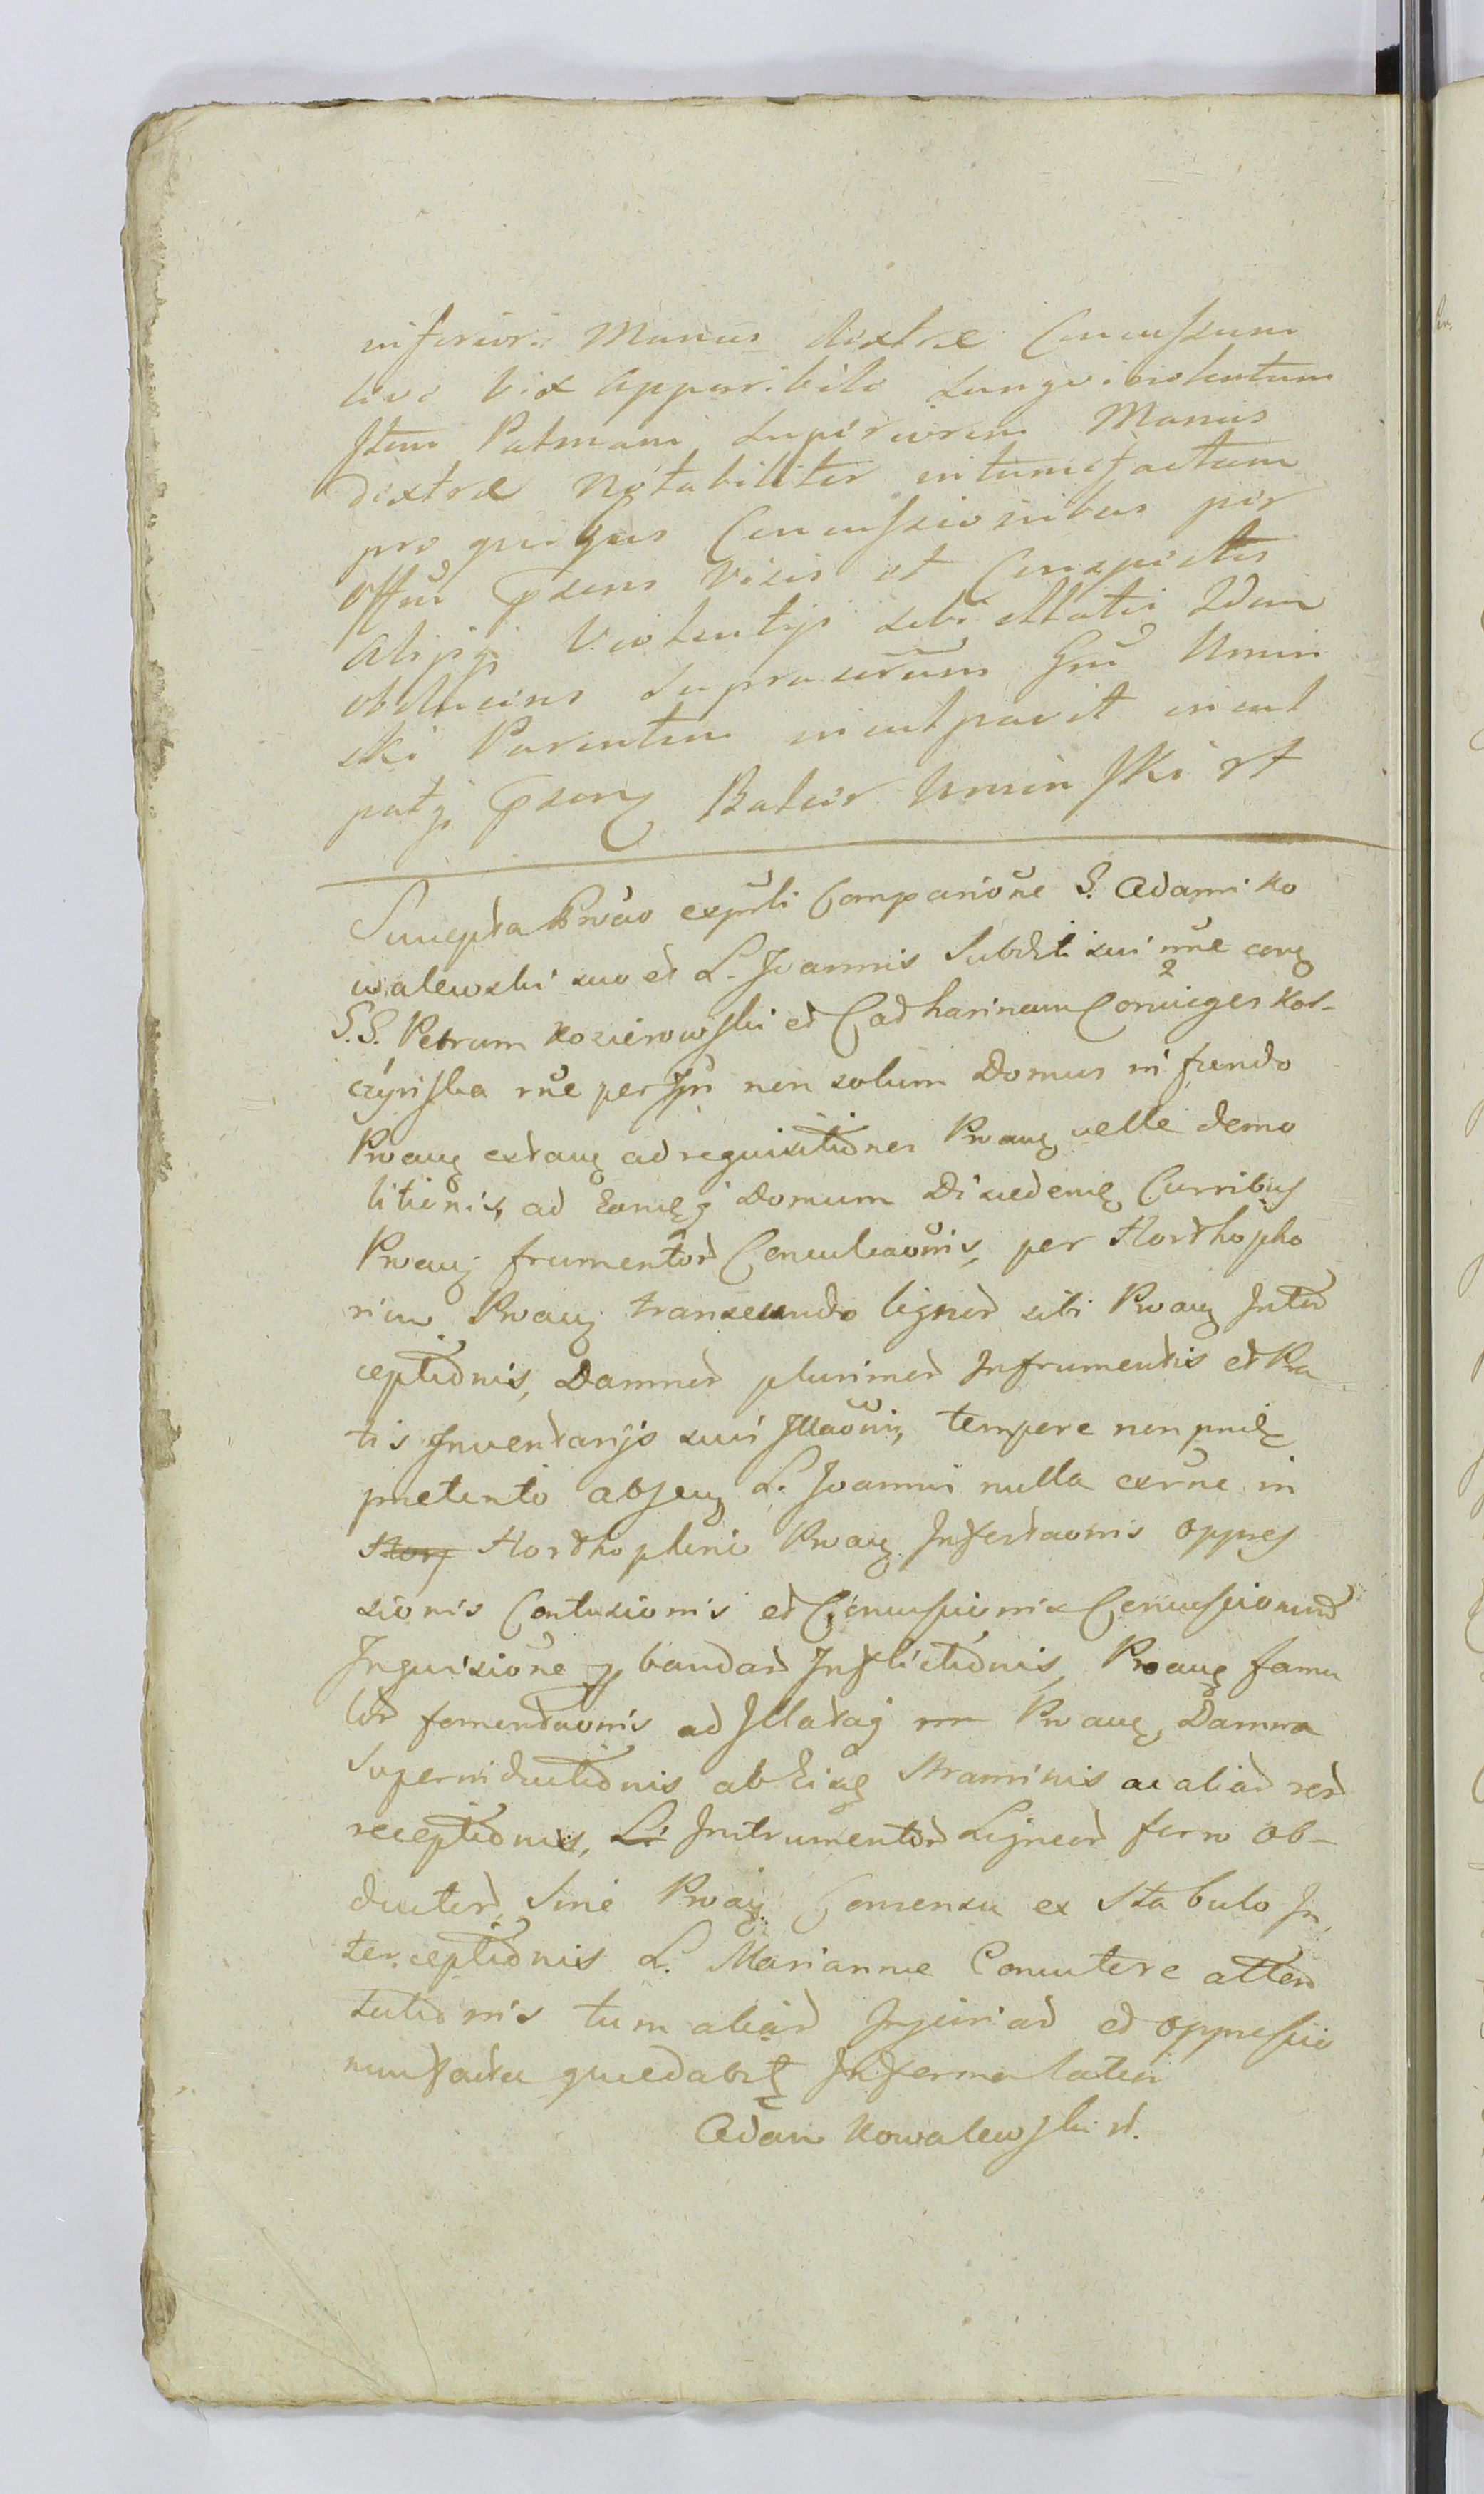 inferiori Manus dextræ Concussum
livo vix apparibile sangviolentum
Item Palmam superiorem Manus
dextræ notabiliter intumefactam
pro quibus Concussionibus per
Offium pxens visis et Conspectis
alijsqz violentijs sibi illatis Idem
obducens supraserum Gnū Umin
ski Parentem inculpavit incul
patqz pxenz Balcer Uminski rt
Suscepta Prōāo expūli Comparitione S. Adami Ko
walewski suo et L. Joannis Subdti sui nne conz
S.S. Petrum Kozierowski et Catharinam Conuiges Kos-
czynska rne per Ipn non solum Domus in fundo
Proanz extanz ad requisitiōnes Proanz velle demo
litiōnis, ad eamqz Domum Curribus
Proanz frumentor Conculcaōnis, per Horthopho
rim Proanz transeundo lignor sibi Proanz Inter
ceptiōnis, Damnor plurimor In frumentis et Pra
tis Inventarijs suis Illaōnis, tempore non
pretento absenz L. Joanni nulla exrne in
Horthopherio Proanz Infestaōnis Oppres
sionis Contusionis et Concussionis Concussionum
Inquisiōne pbandar Inflictiōnis, Proanz famu
lor fomentaōnis ad Illatas Proanz Damna
Superinductiōnis ab Straminis ac aliar rer
receptiōnis, Li Instrumentor Ligneor ferro ob-
ductor, Sine Proanz Consensu ex Stabulo In
terceptiōnis L. Mariannæ Concutere atten
tatiōnis tum aliar Injuriar et oppressio
num facta quædabit In forma latiori
Adam Kowalewski rt.